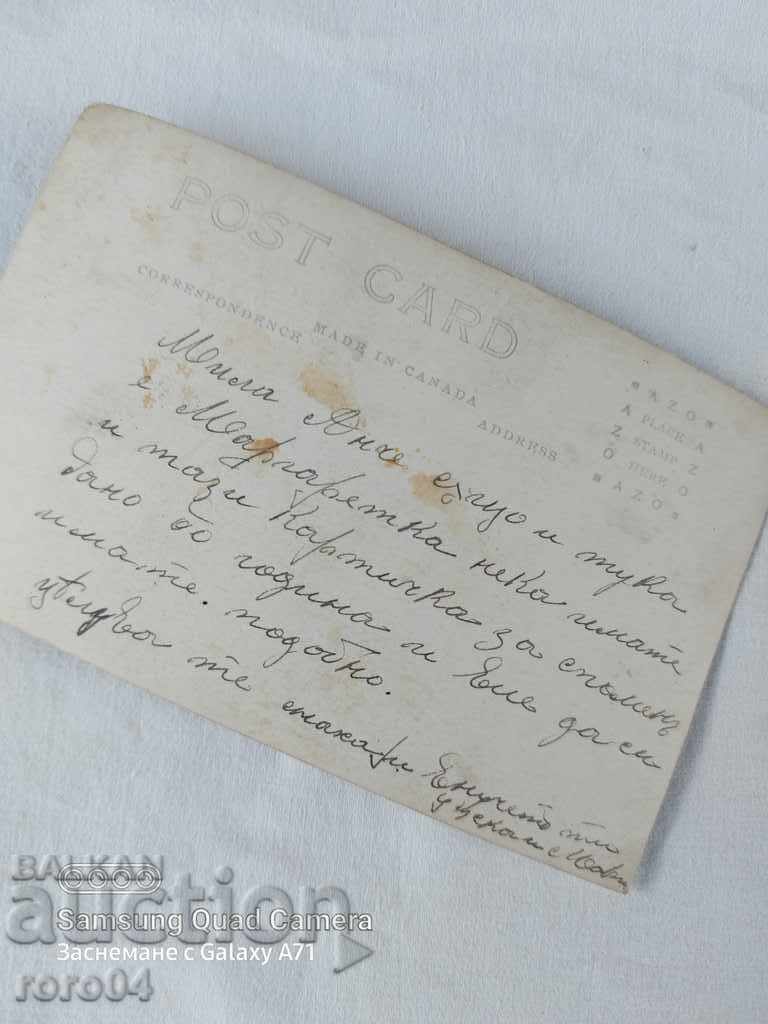 POST CARD
CORRESPONDENCE
MADE IN CANADA
ADDRESS
AZO
A PLACE A
Z STAMP Z
O HERE O
AZO
Мила Анхе и тука
е Маргаретка нека имате
и тази картичка за споменъ
дано до година и Вие да си
имате. подобно.
цѣлува те
ти
BALKAN
auction
roro04
Samsung Quad Camera
Заснемане с Galaxy A71